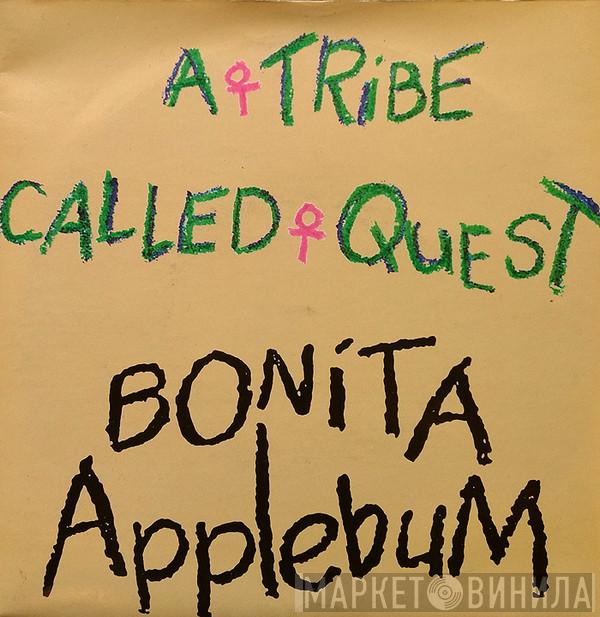 A TRiBE
CALLED QUEST
BONiTA
ApplebuM
МАРКЕТ ВИНИЛА